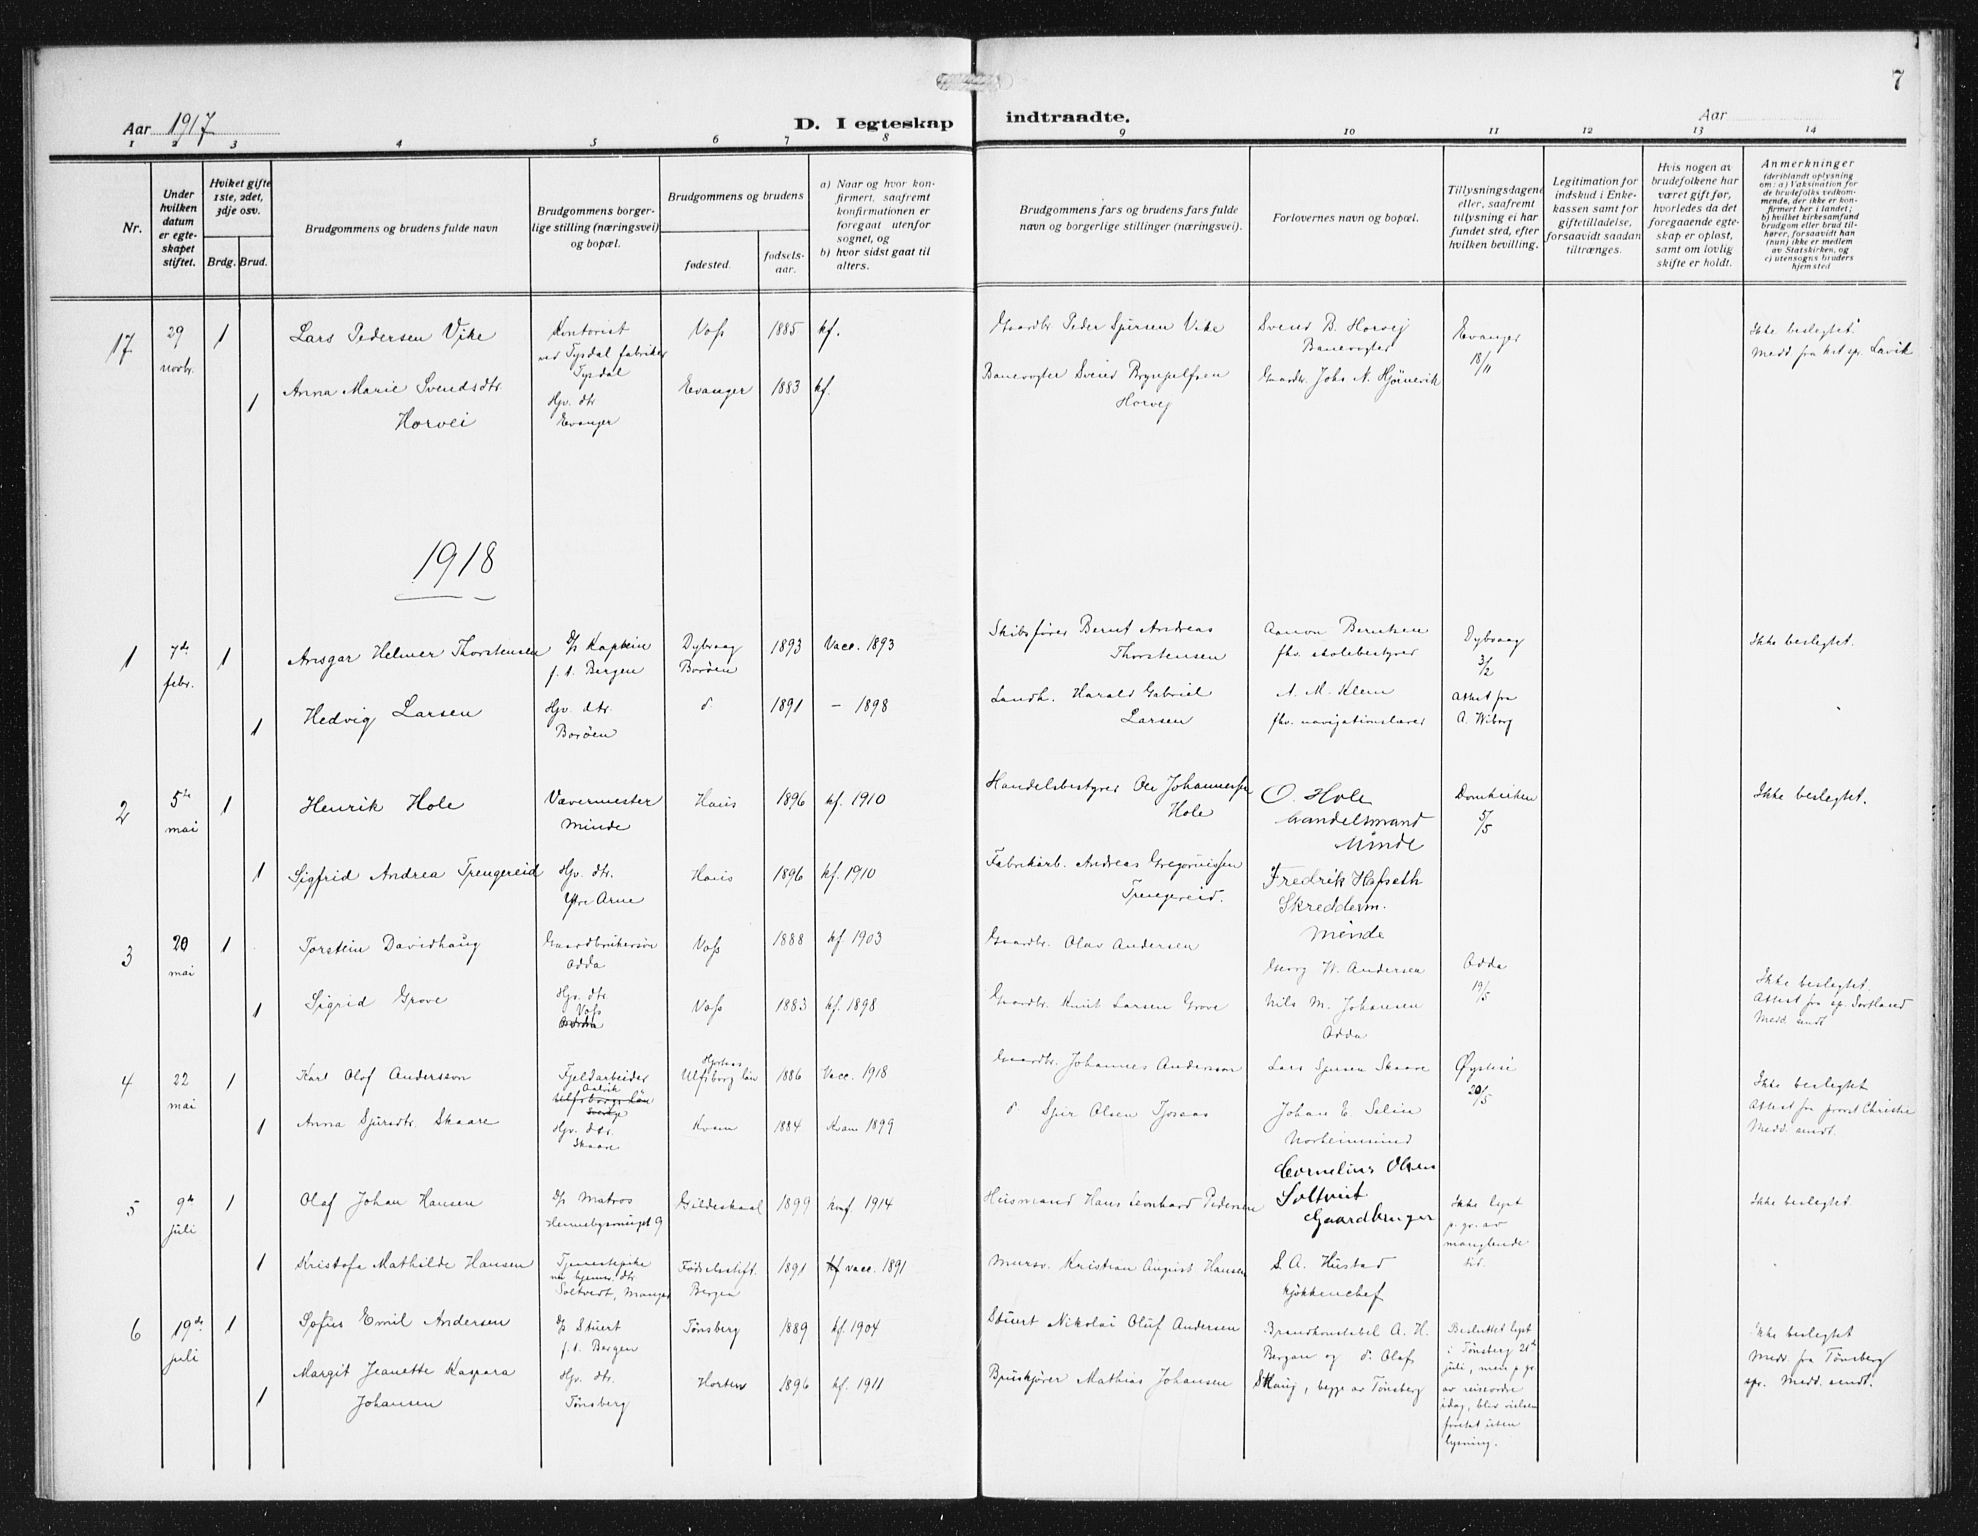 7
Aar 1917
D. I egteskap indtraadte.
Aar
1 2 3 4 5 6 7 8 9 10 11 12 13 14
Nr.
Under hvilken datum er egteskapet stiftet.
Hviket gifte 1ste, 2det, 3dje osv.
Brdg. Brud.
Brudgommens og brudens fulde navn
Brudgommens borgerlige stilling (næringsvei) og bopæl.
Brudgommens og brudens
fødested.
fødselsaar.
a) Naar og hvor konfirmert, saafremt konfirmationen er foregaat utenfor sognet, og
b) hvor sidst gaat til alters.
Brudgommens fars og brudens fars fulde navn og borgerlige stillinger (næringsvei).
Forlovernes navn og bopæl.
Tillysningsdagene eller, saafremt tillysning ei har fundet sted, efter hvilken bevilling.
Legitimation for indskud i Enkekassen samt for giftetilladelse, forsaavidt saadan tiltrænges.
Hvis nogen av brudefolkene har været gift før, hvorledes da det foregaaende egteskap er opløst, samt om lovlig skifte er holdt.
Anmerkninger (deriblandt oplysning om: a) Vaksination for de brudefolks vedkommende, der ikke er konfirmert her i landet; b) hvilket kirkesamfund brudgom eller brud tilhører, forsaavidt han (hun) ikke er medlem av Statskirken, og c) utensogns bruders hjemsted
17 29 novbr. 1 Lars Pedersen Vike Kontorist ved Tysdal fabriker Tysdal Voss 1885 kf. Gaardbr. Peder Sjursen Vike Svend B. Horvej Banevogter Evanger 18/11 Ikke beslegtet. Medd fra
1 Anna Marie Svendsdtr. Horvei Hjv. dtr Evanger Evanger 1883 kf. Banevogter Svend Brynjulfsen Horvej Gaardbr. Johs N. Hjørnevik
1918
1 7de febr. 1 Ansgar Helmer Thorstensen D/S Kaptein f. t. Bergen Dybvaag Borøen 1893 Vacc. 1893 Skibsfører Bernt Andreas Thorstensen Aanon Berntsen fhv. skolebestyrer Dybvaag 3/2 Ikke beslegtet.
1 Hedvig Larsen Hjv. dtr. Borøen 1891 – 1898 Landh. Harald Gabriel Larsen A. M. Klem fhv. navigationslærer Attest fra A. Wiborg
2 5te mai 1 Henrik Hole Vævermester Minde Haus 1896 kf. 1910 Handelsbestyrer Ole Johannessen Hole O. Hole Handelsmand Minde Domkirken 5/5 Ikke beslegtet.
1 Sigfrid Andrea Trengereid Hjv. dtr. Ytre Arne Haus 1896 kf. 1910 Fabrikarb. Andreas Gregoriussen Trengereid. Fredrik Hafseth Skredderm. Minde
3 20 mai 1 Torstein Davidhaug Gaardbrukersøn Odda Voss 1888 kf. 1903 Gaardbr. Olav Andersen Georg W. Andersen Odda 19/5
1 Sigrid Grove Hjv. dtr Voss Voss 1883 kf. 1898 Gaardbr. Knut Larsen Grove Nils M. Johansen Odda Ikke beslegtet. Attest fra sp. Medd. sendt
4 22 mai 1 Karl Olof Andersson Fjeldarbeider Aalvik Ulfsborg län Sverige Ulfsborg län 1886 Vacc. 1918 Gaardbr. Johannes Andersson Lars Sjursen Skaare Øystese 20/5 Ikke beslegtet Attest fra provst Christie Medd. sendt.
1 Anna Sjursdtr. Skaare Hjv. dtr. Skaare Kvam 1884 Kvam 1899 Sjur Olsen Johan E. Selin Norheimsund
5 9de juli 1 Olaf Johan Hansen D/S Matros Gildeskaal 1899 konf 1914 Husmand Hans Leonhard Pedersen Cornelius Olsen Soltveit Gaardbruger Ikke lyst p. gr. av manglende tid. Ikke beslegtet.
1 Kristofa Mathilde Hansen Tjenestepike nu hjemv. dtr Soltvedt, Manger Fødselsstift. Bergen 1891 vacc. 1891 Mursv. Kristian August Hansen S. A. Hustad Kjøkkenchef
6 19de juli 1 Sofus Emil Andersen D/S Stuert f. t. Bergen Tønsberg 1889 kf. 1904 Stuert Nikolai Oluf Andersen Brandkonstabel A. H. Bergan og Olaf Skaug, begge av Tønsberg Besluttet lyst i Tønsberg 21de juli, men p. gr. av reiseordre idag, blev vielsen foretat uten lysning. Ikke beslegtet Medd. fra Tønsberg spr. Medd. sendt.
1 Margit Jeanette Kaspara Johansen Hjv. dtr. Tønsberg Horten 1896 kf. 1911 Bryskjører Mathias Johansen